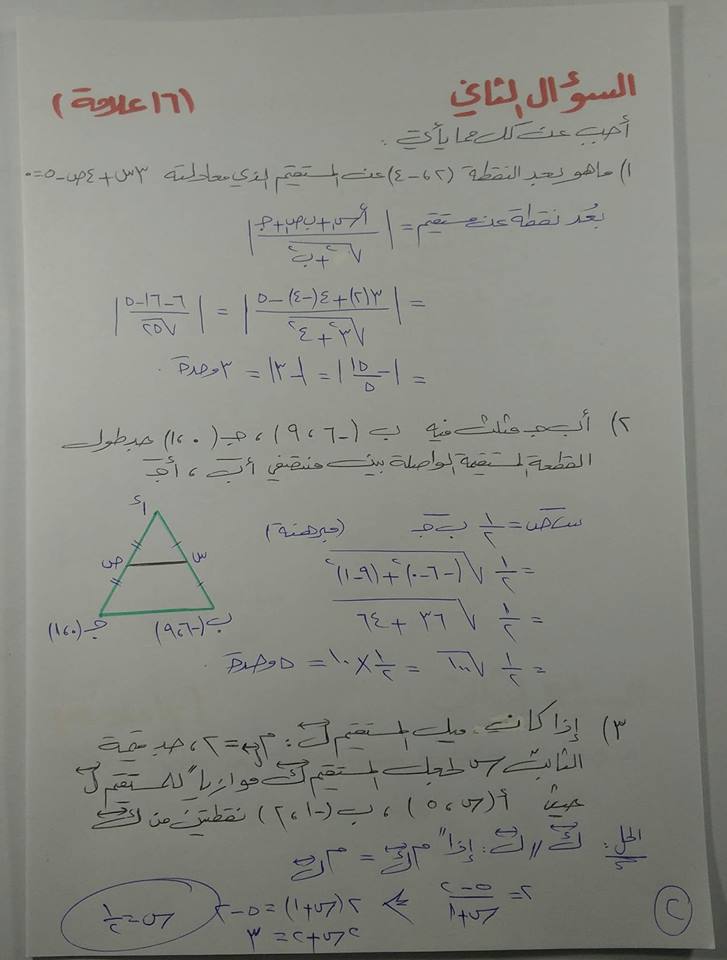 السؤال الثاني (١٦ علامة)
أجب عن كل مما يأتي :
١) ما هو بعد النقطة (٢، -٤) عن المستقيم الذي معادلته ٣س + ٤ص - ٥ = ٠
بُعد نقطة عن مستقيم = | (أس₁ + ب ص₁ + جـ) / √(أ² + ب²) |
= | (٣(٢) + ٤(-٤) - ٥) / √(٣² + ٤²) | = | (٦ - ١٦ - ٥) / √٢٥ |
= | -١٥/٥ | = |-٣| = ٣ وحدة .
٢) أ ب جـ مثلث فيه ب (-٦، ٩) ، جـ (٠، ١) جد طول
القطعة المستقيمة الواصلة بين منتصفي أب ، أجـ
س ص = ١/٢ ب جـ (مبرهنة)
= ١/٢ √((-٦ - ٠)² + (٩ - ١)²)
= ١/٢ √(٣٦ + ٦٤)
= ١/٢ √١٠٠ = ١/٢ × ١٠ = ٥ وحدة
أ
س
ص
ب (-٦، ٩)
جـ (٠، ١)
٣) إذا كان ميل المستقيم ل : م ل = ٢ ، جد قيمة
الثابت س لجعل المستقيم ك موازياً للمستقيم ل
حيث أ (س، ٥) ، ب (-١، ٢) نقطتين من ك
الحل : ك // ل : إذاً م ك = م ل
(٥ - ٢) / (س + ١) = ٢ ⇐ ٢(س + ١) = ٥ - ٢
٢س + ٢ = ٣
س = ١/٢